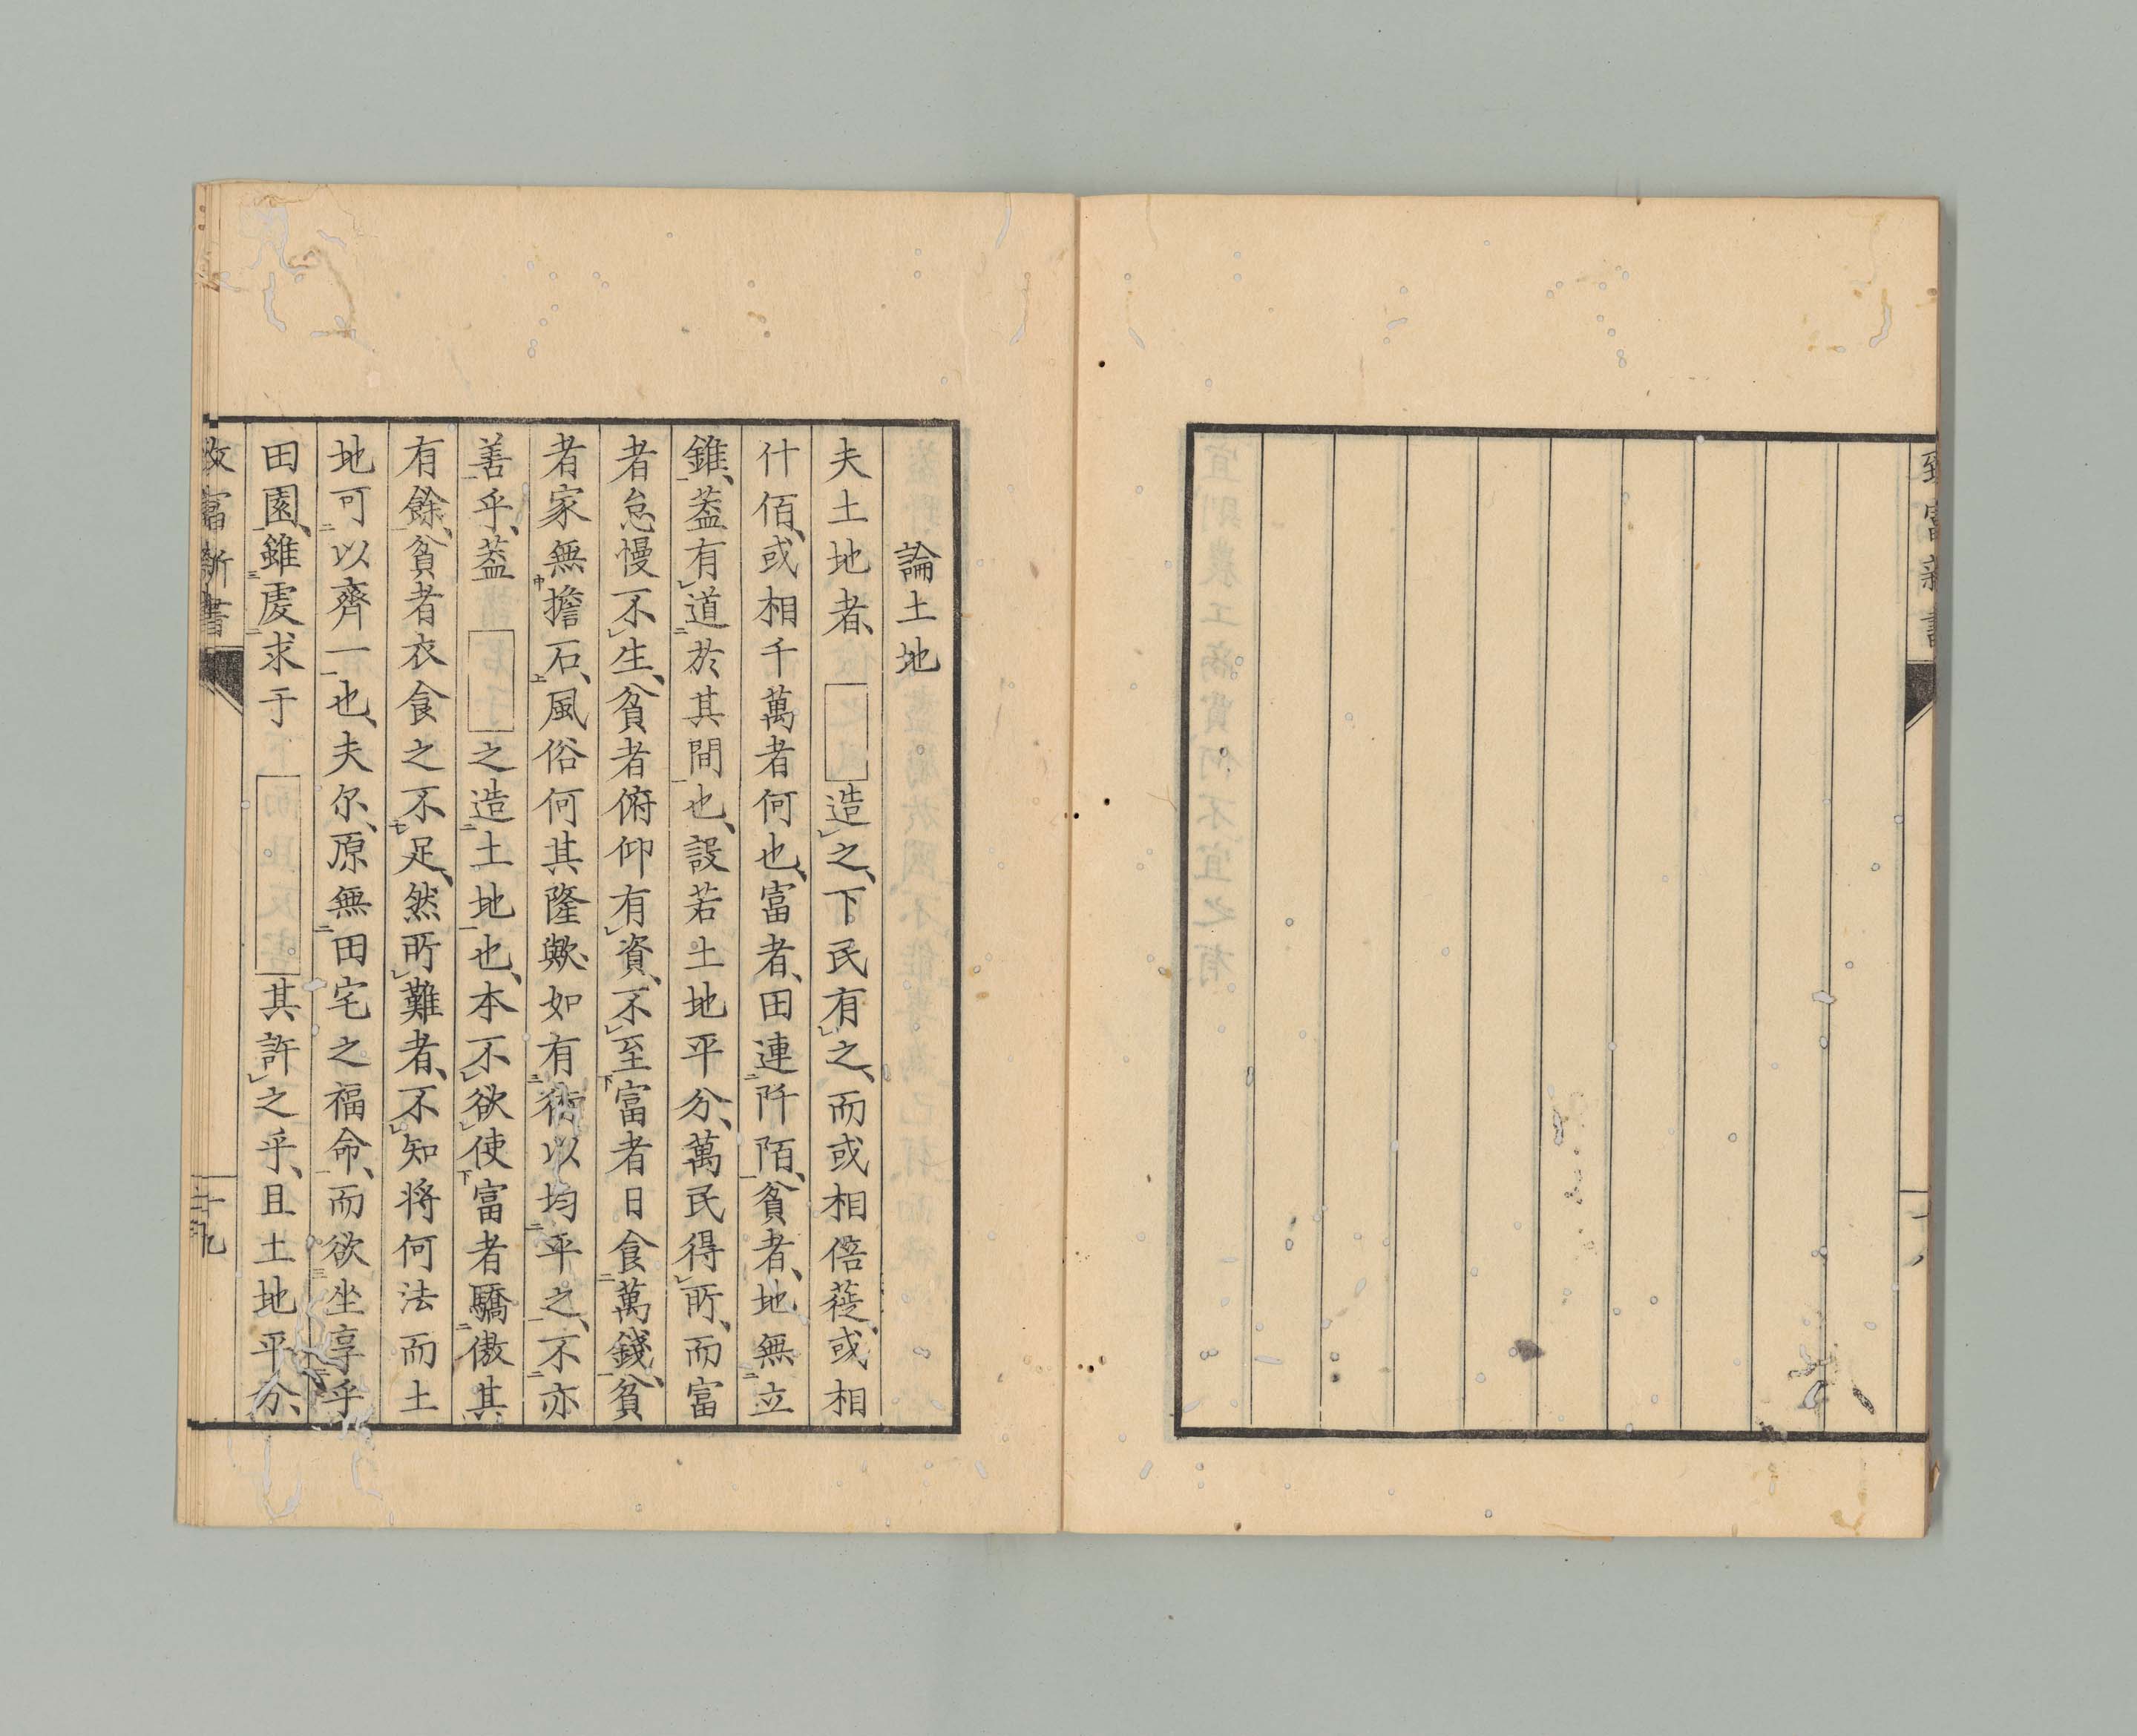 致富新書
論土地
夫土地者、造㆑之、下民有㆑之、而或相倍蓰、或相
什佰、或相千萬者何也、富者、田連㆓阡陌㆒、貧者、地無㆓立
錐㆒、蓋有㆑道㆓於其間㆒也、設若土地平分、萬民得㆑所、而富
者怠慢不㆑生、貧者俯仰有㆑資、不㆑至㆘富者日食㆓萬錢㆒、貧
者家無㆗擔石㆖、風俗何其隆歟、如有㆘術以均㆓平之㆒、不㆓亦
善㆒乎、蓋之造㆓土地㆒也、本不㆑欲㆑使㆘富者驕㆓傲其
有餘㆒、貧者衣食之不㆖足、然所㆑難者、不㆑知將何法而土
地可㆓以齊一㆒也、夫尔、原無㆓田宅之福命㆒、而欲㆔坐享㆓乎
田園㆒、雖㆔虔㆓求于其許㆑之乎、且土地平分、
致富新書
十九